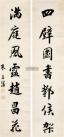 四壁圖書鄴侯架
滿庭風露趙昌花